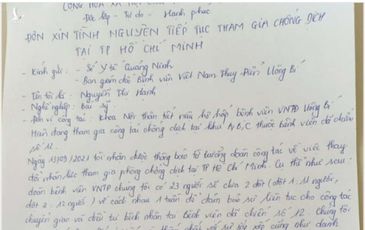 CỘNG HÒA XÃ HỘI
Độc lập - Tự do - Hạnh phúc
ĐƠN XIN TÌNH NGUYỆN TIẾP TỤC THAM GIA CHỐNG DỊCH
TẠI TP HỒ CHÍ MINH
- Kính gửi: - Sở Y tế Quảng Ninh
- Ban giám đốc Bệnh viện Việt Nam Thụy Điển Uông Bí
- Tên tôi là: Nguyễn Thu Hạnh
- Nghề nghiệp: Bác sỹ
- Đơn vị công tác: Khoa Nội Thận tiết niệu bệnh viện VNTĐ Uông Bí
Hiện đang tham gia công tác chống dịch tại khu A, B, C thuộc bệnh viện dã chiến
số
Ngày 13/09/2021 tôi nhận được thông báo từ trưởng đoàn công tác về việc thay
đổi nhân lực tham gia phòng chống dịch tại TP Hồ Chí Minh. Cụ thể như sau:
đoàn bệnh viện VNTĐ chúng tôi có 23 người sẽ chia 2 đợt (đợt 1: 11 người,
đợt 2: 12 người) về cách nhau 1 tuần để đảm bảo sự liên tục cho công tác
chuyển giao và điều trị bệnh nhân tại Bệnh viện dã chiến số 12. Chúng tôi